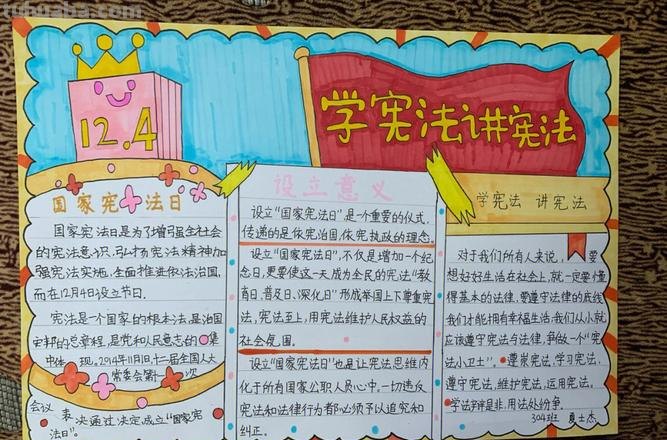 tubuaba.com
12.4
学宪法讲宪法
国家宪法日
国家宪法日是为了增强全社会
的宪法意识,弘扬宪法精神加
强宪法实施,全面推进依法治国,
而在12月4日设立节日.
宪法是一个国家的根本法,是治国
安邦的总章程,是党和人民意志的集
中体现.2914年11月1日,十二届全国人大
常委会第十次
会议表决通过决定,成立“国家宪
法日”。
设立意义
设立“国家宪法日”,是一个重要的仪式,
传递的是依宪治国,依宪执政的理念。
设立“国家宪法日”,不仅是增加一个纪
念日,更要使这一天成为全民的宪法“教
育日、普及日、深化日”形成举国上下尊重宪
法,宪法至上,用宪法维护人民权益的
社会氛围.
设立“国家宪法日”也是让宪法思维内
化于所有国家公职人员心中.一切违反
宪法和法律行为都必须予以追究和
纠正.
学宪法 讲宪法
对于我们所有人来说,要
想好好生活在社会上,就一定要懂
得基本的法律,要遵守法律的底线
我们才能拥有幸福生活;我们从小就
应该遵守宪法与法律,争做一个“宪
法小卫士”。尊崇宪法,学习宪法,
遵守宪法,维护宪法,运用宪法。
学法辩是非,用法处纷争。
304班 夏士杰